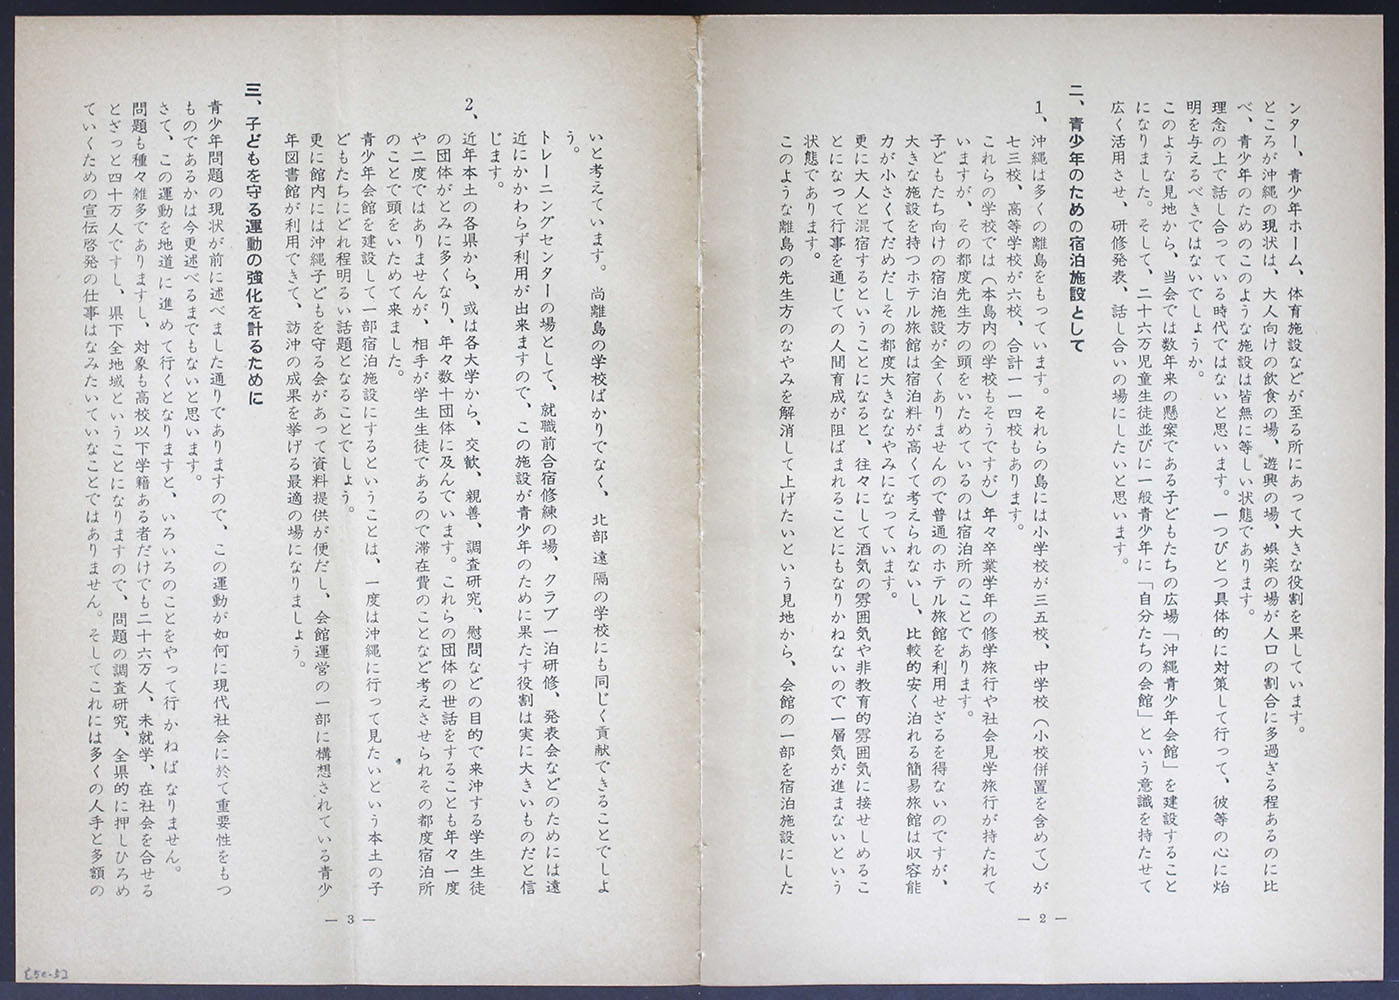 ンター、青少年ホーム、体育施設などが至る所にあって大きな役割を果しています。
ところが沖縄の現状は、大人向けの飲食の場、遊興の場、娯楽の場が人口の割合に多過ぎる程あるのに比
べ、青少年のためのこのような施設は皆無に等しい状態であります。
理念の上で話し合っている時代ではないと思います。一つびとつ具体的に対策して行って、彼等の心に炲
明を与えるべきではないでしょうか。
このような見地から、当会では数年来の懸案である子どもたちの広場「沖縄青少年会館」を建設すること
になりました。そして、二十六万児童生徒並びに一般青少年に「自分たちの会館」という意識を持たせて
広く活用させ、研修発表、話し合いの場にしたいと思います。
二、青少年のための宿泊施設として
1、沖縄は多くの離島をもっています。それらの島には小学校が三五校、中学校(小校併置を含めて)が
七三校、高等学校が六校、合計一一四校もあります。
これらの学校では(本島内の学校もそうですが)年々卒業学年の修学旅行や社会見学旅行が持たれて
いますが、その都度先生方の頭をいためているのは宿泊所のことであります。
子どもたち向けの宿泊施設が全くありませんので普通のホテル旅館を利用せざるを得ないのですが、
大きな施設を持つホテル旅館は宿泊料が高くて考えられないし、比較的安く泊れる簡易旅館は収容能
力が小さくてだめだしその都度大きななやみになっています。
更に大人と混宿するということになると、往々にして酒気の雰囲気や非教育的雰囲気に接せしめるこ
とになって行事を通じての人間育成が阻ばまれることにもなりかねないので一層気が進まないという
状態であります。
このような離島の先生方のなやみを解消して上げたいという見地から、会館の一部を宿泊施設にした
— 2 —
いと考えています。尚離島の学校ばかりでなく、北部遠隔の学校にも同じく貢献できることでしょ
う。
トレーニングセンターの場として、就職前合宿修練の場、クラブ一泊研修、発表会などのためには遠
近にかかわらず利用が出来ますので、この施設が青少年のために果たす役割は実に大きいものだと信
じます。
2、近年本土の各県から、或は各大学から、交歓、親善、調査研究、慰問などの目的で来沖する学生生徒
の団体がとみに多くなり、年々数十団体に及んでいます。これらの団体の世話をすることも年々一度
や二度ではありませんが、相手が学生生徒であるので滞在費のことなど考えさせられその都度宿泊所
のことで頭をいためて来ました。
青少年会館を建設して一部宿泊施設にするということは、一度は沖縄に行って見たいという本土の子
どもたちにどれ程明るい話題となることでしょう。
更に館内には沖縄子どもを守る会があって資料提供が便だし、会館運営の一部に構想されている青少
年図書館が利用できて、訪沖の成果を挙げる最適の場になりましょう。
三、子どもを守る運動の強化を計るために
青少年問題の現状が前に述べました通りでありますので、この運動が如何に現代社会に於て重要性をもつ
ものであるかは今更述べるまでもないと思います。
さて、この運動を地道に進めて行くとなりますと、いろいろのことをやって行かねばなりません。
問題も種々雑多でありますし、対象も高校以下学籍ある者だけでも二十六万人、未就学、在社会を合せる
とざっと四十万人ですし、県下全地域ということになりますので、問題の調査研究、全県的に押しひろめ
ていくための宣伝啓発の仕事はなみたいていなことではありません。そしてこれには多くの人手と多額の
— 3 —